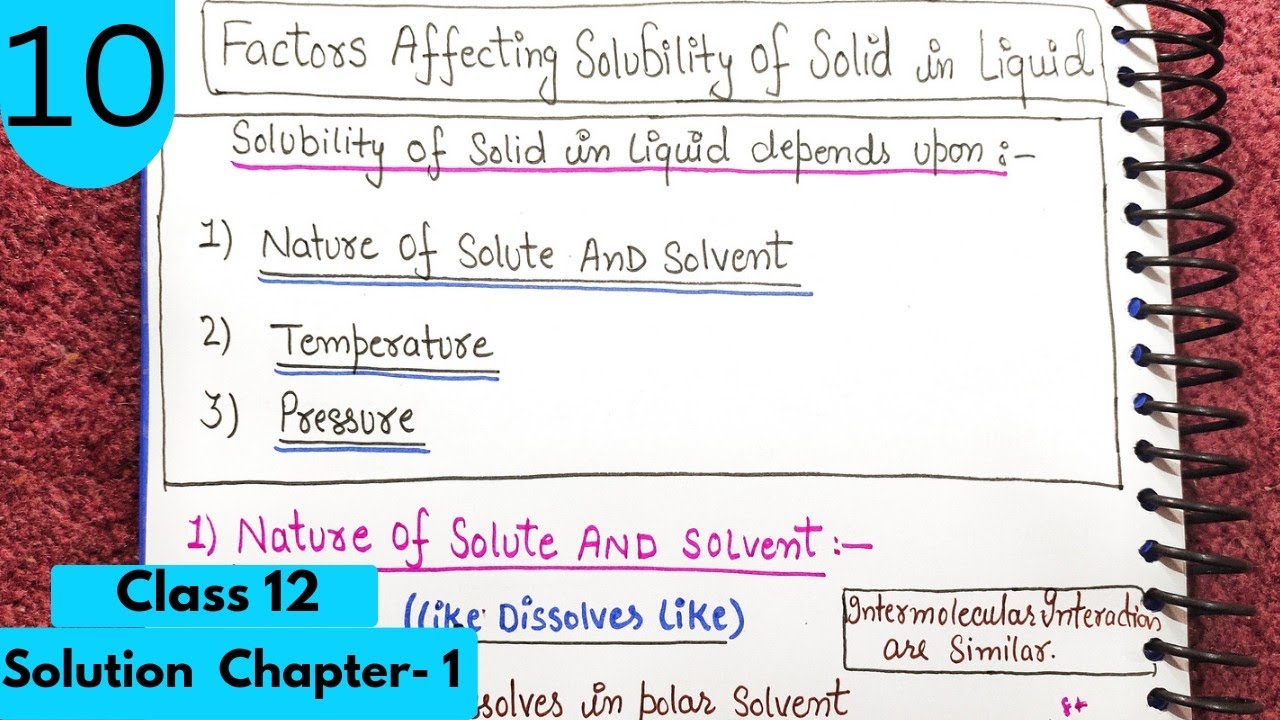 10
Factors Affecting Solubility of Solid in Liquid
Solubility of Solid in Liquid depends upon :-
1) Nature Of Solute AND Solvent
2) Temperature
3) Pressure
1) Nature Of Solute AND Solvent :-
(Like Dissolves Like)
Intermolecular Interaction
are Similar.
Class 12
Solution Chapter- 1
in polar Solvent